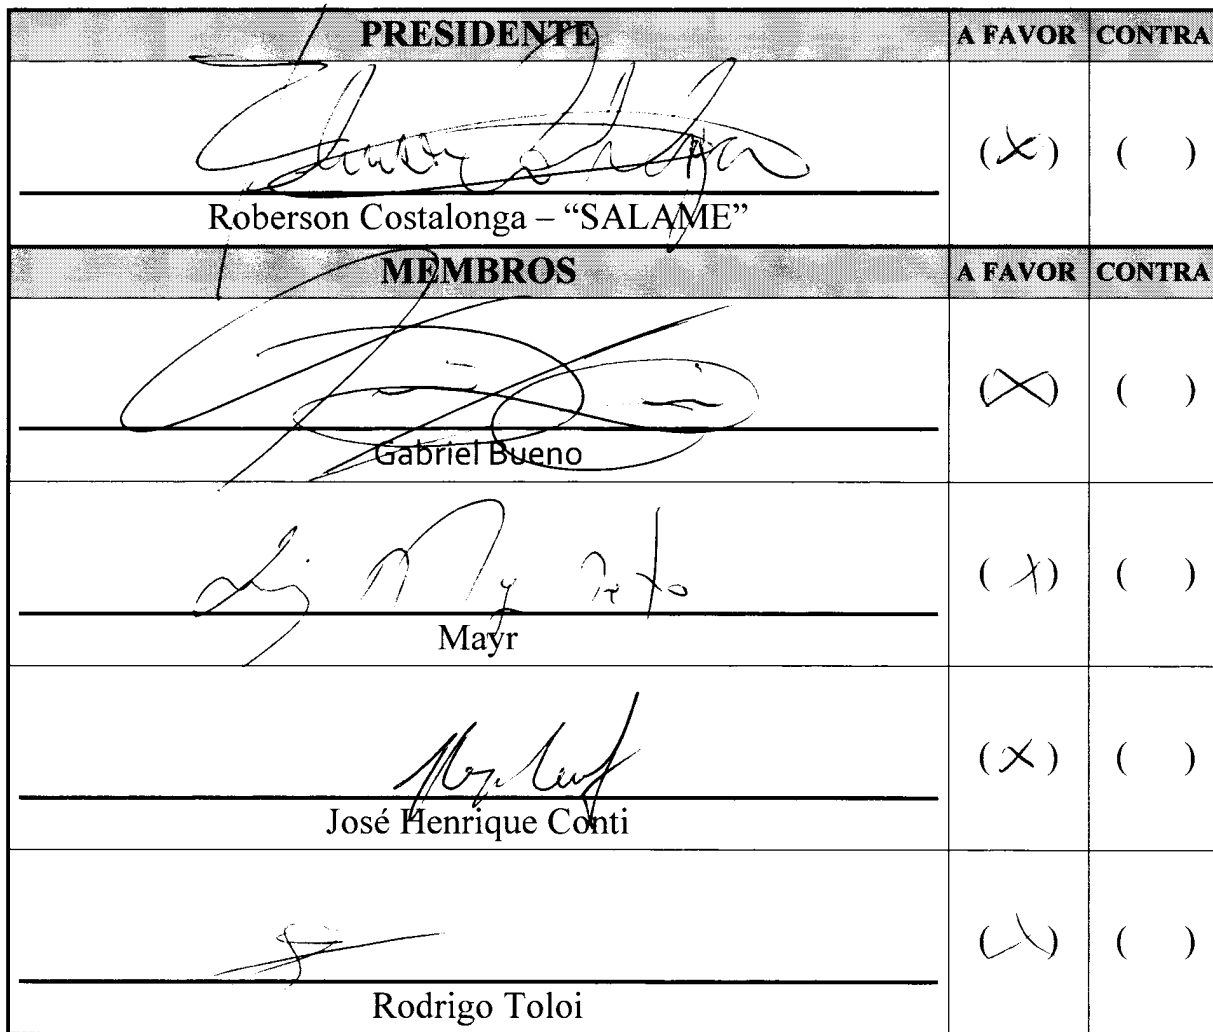 PRESIDENTE A FAVOR CONTRA
(X) ( )
Roberson Costalonga – “SALAME”
MEMBROS A FAVOR CONTRA
(X) ( )
Gabriel Bueno
(X) ( )
Mayr
(X) ( )
José Henrique Conti
(X) ( )
Rodrigo Toloi